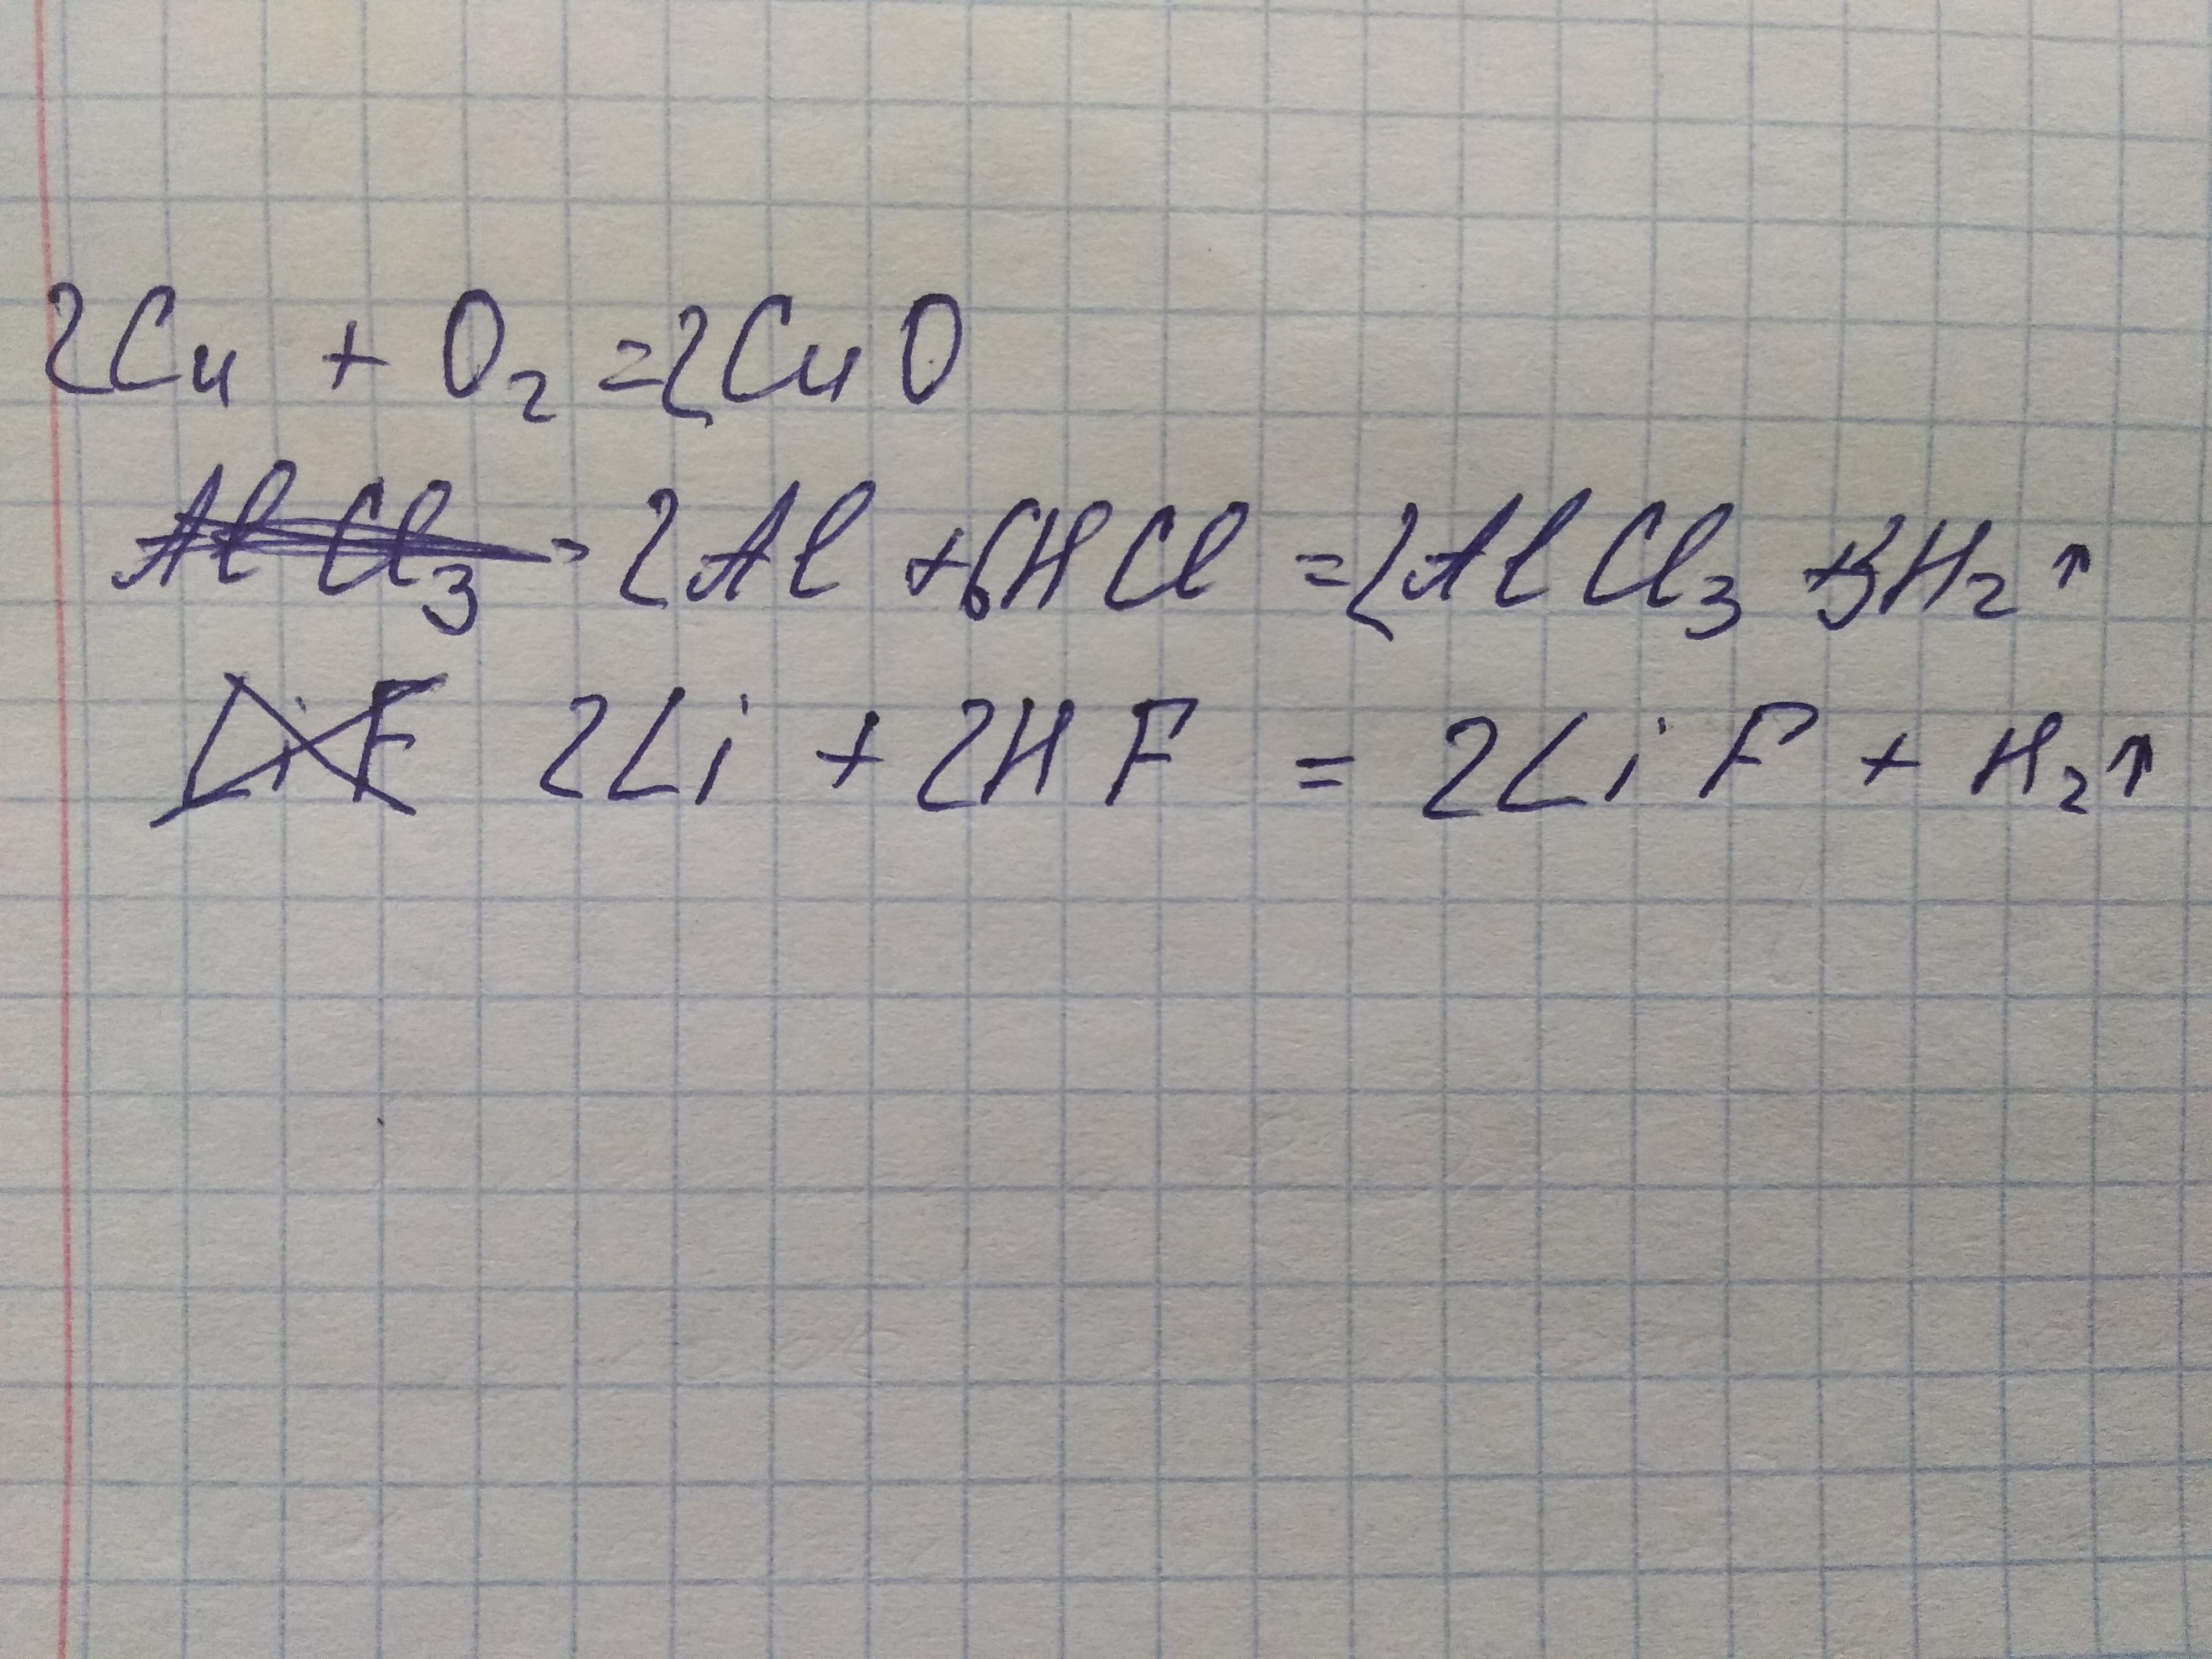 2Cu + O₂ = 2CuO
AlCl₃ - 2Al + 6HCl = 2AlCl₃ + 3H₂↑
LiF 2Li + 2HF = 2LiF + H₂↑